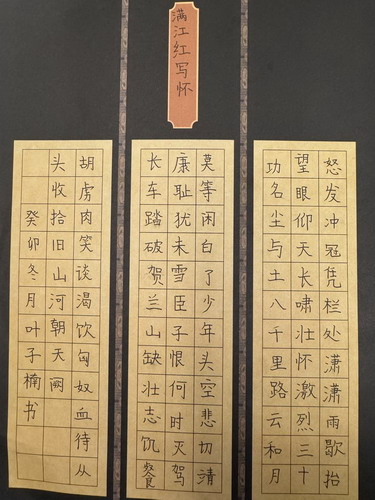 满江红写怀
怒发冲冠凭栏处潇潇雨歇抬
望眼仰天长啸壮怀激烈三十
功名尘与土八千里路云和月
莫等闲白了少年头空悲切清
康耻犹未雪臣子恨何时灭驾
长车踏破贺兰山缺壮志饥餐
胡虏肉笑谈渴饮匈奴血待从
头收拾旧山河朝天阙
癸卯冬月叶子楠书